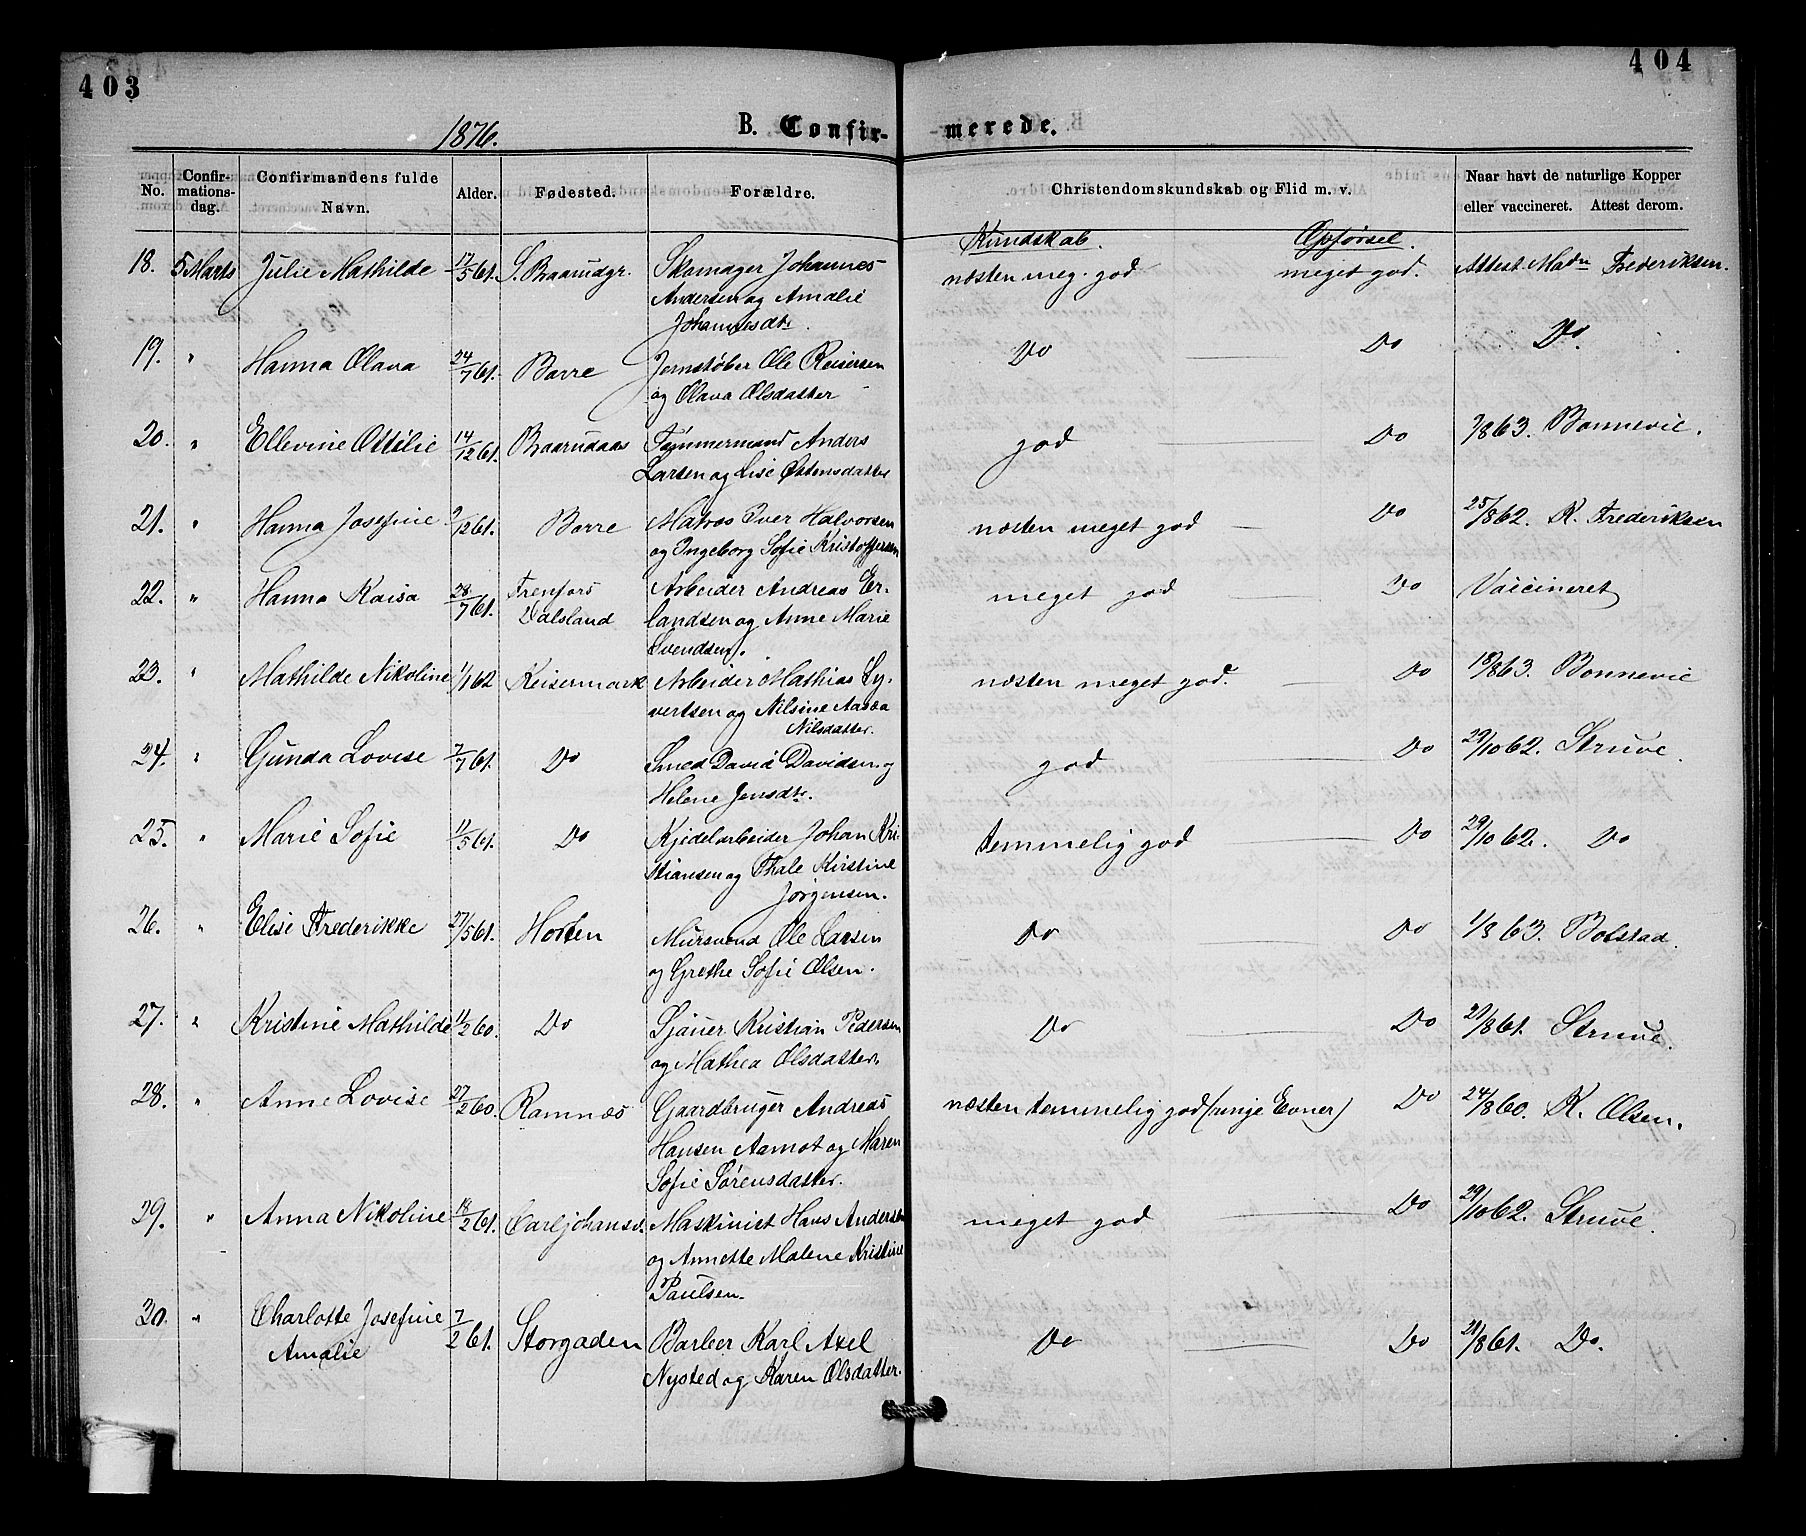 403
404
1876.
B. Confir-
merede.
No.
Confir-
mations-
dag.
Confirmandens fulde
Navn.
Alder.
Fødested.
Forældre.
Christendomskundskab og Flid m. v.
Naar havt de naturlige Kopper
eller vaccineret. Attest derom.
Kundskab. Opførsel.
18. 5 Marts Julie Mathilde 17/5 61. S. Baarudgr. Skomager Johannes næsten meg. god meget god. Attest Madm Frederiksen.
Andersen og Amalie
Johannesdtr.
19. " Hanna Olava 24/7 61. Borre Jernstøber Ole Reiersen Do Do Do.
og Olava Olsdatter
20. " Ellevine Ottilie 14/12 61. Baarudaas Tømmermand Anders god Do 9/8 63. Bonnevie.
Larsen og Lise Østensdatter
21. " Hanna Josefine 9/12 61. Borre Matros Iver Halvorsen næsten meget god Do 25/8 62. K. Frederiksen
og Ingeborg Sofie Kristoffersen
22. " Hanna Kaisa 28/7 61. Frenfors Arbeider Andreas Er- meget god Do Vaccineret
Dalsland landsen og Anne Marie
Svendsen.
23. " Mathilde Nikoline 1/1 62 Keisermark Arbeider Mathias Sy- næsten meget god. Do 18/8 63. Bonnevie
vertsen og Nilsine Aasea
Nilsdatter.
24. " Gunda Lovise 7/7 61. Do Smed David Davidsen og god Do 29/10 62. Struve.
Helene Jensdtr.
25. " Marie Sofie 11/5 61. Do Kjedelarbeider Johan Kri- temmelig god Do 29/10 62. Do
stiansen og Thale Kirstine
Jørgensen.
26. " Elise Frederikke 27/5 61. Horten Mursvend Ole Larsen Do Do 1/8 63. Bolstad.
og Grethe Sofie Olsen.
27. " Kristine Mathilde 11/2 60. Do Sjauer Kristian Pedersen Do Do 21/8 61. Struve.
og Mathea Olsdatter.
28. " Anne Lovise 27/2 60. Ramnæs Gaardbruger Andreas næsten temmelig god (ringe Evner) Do 24/8 60. K. Olsen.
Hansen Aamot og Maren
Sofie Sørensdatter.
29. " Anna Nikoline 18/2 61. Carljohansv. Maskinist Hans Andersen meget god Do 29/10 62. Struve.
og Annette Malene Kristine
Paulsen.
30. " Charlotte Josefine 7/2 61. Storgaden Barber Karl Axel Do Do 21/8 61. Do.
Amalie Nysted og Karen Olsdatter.